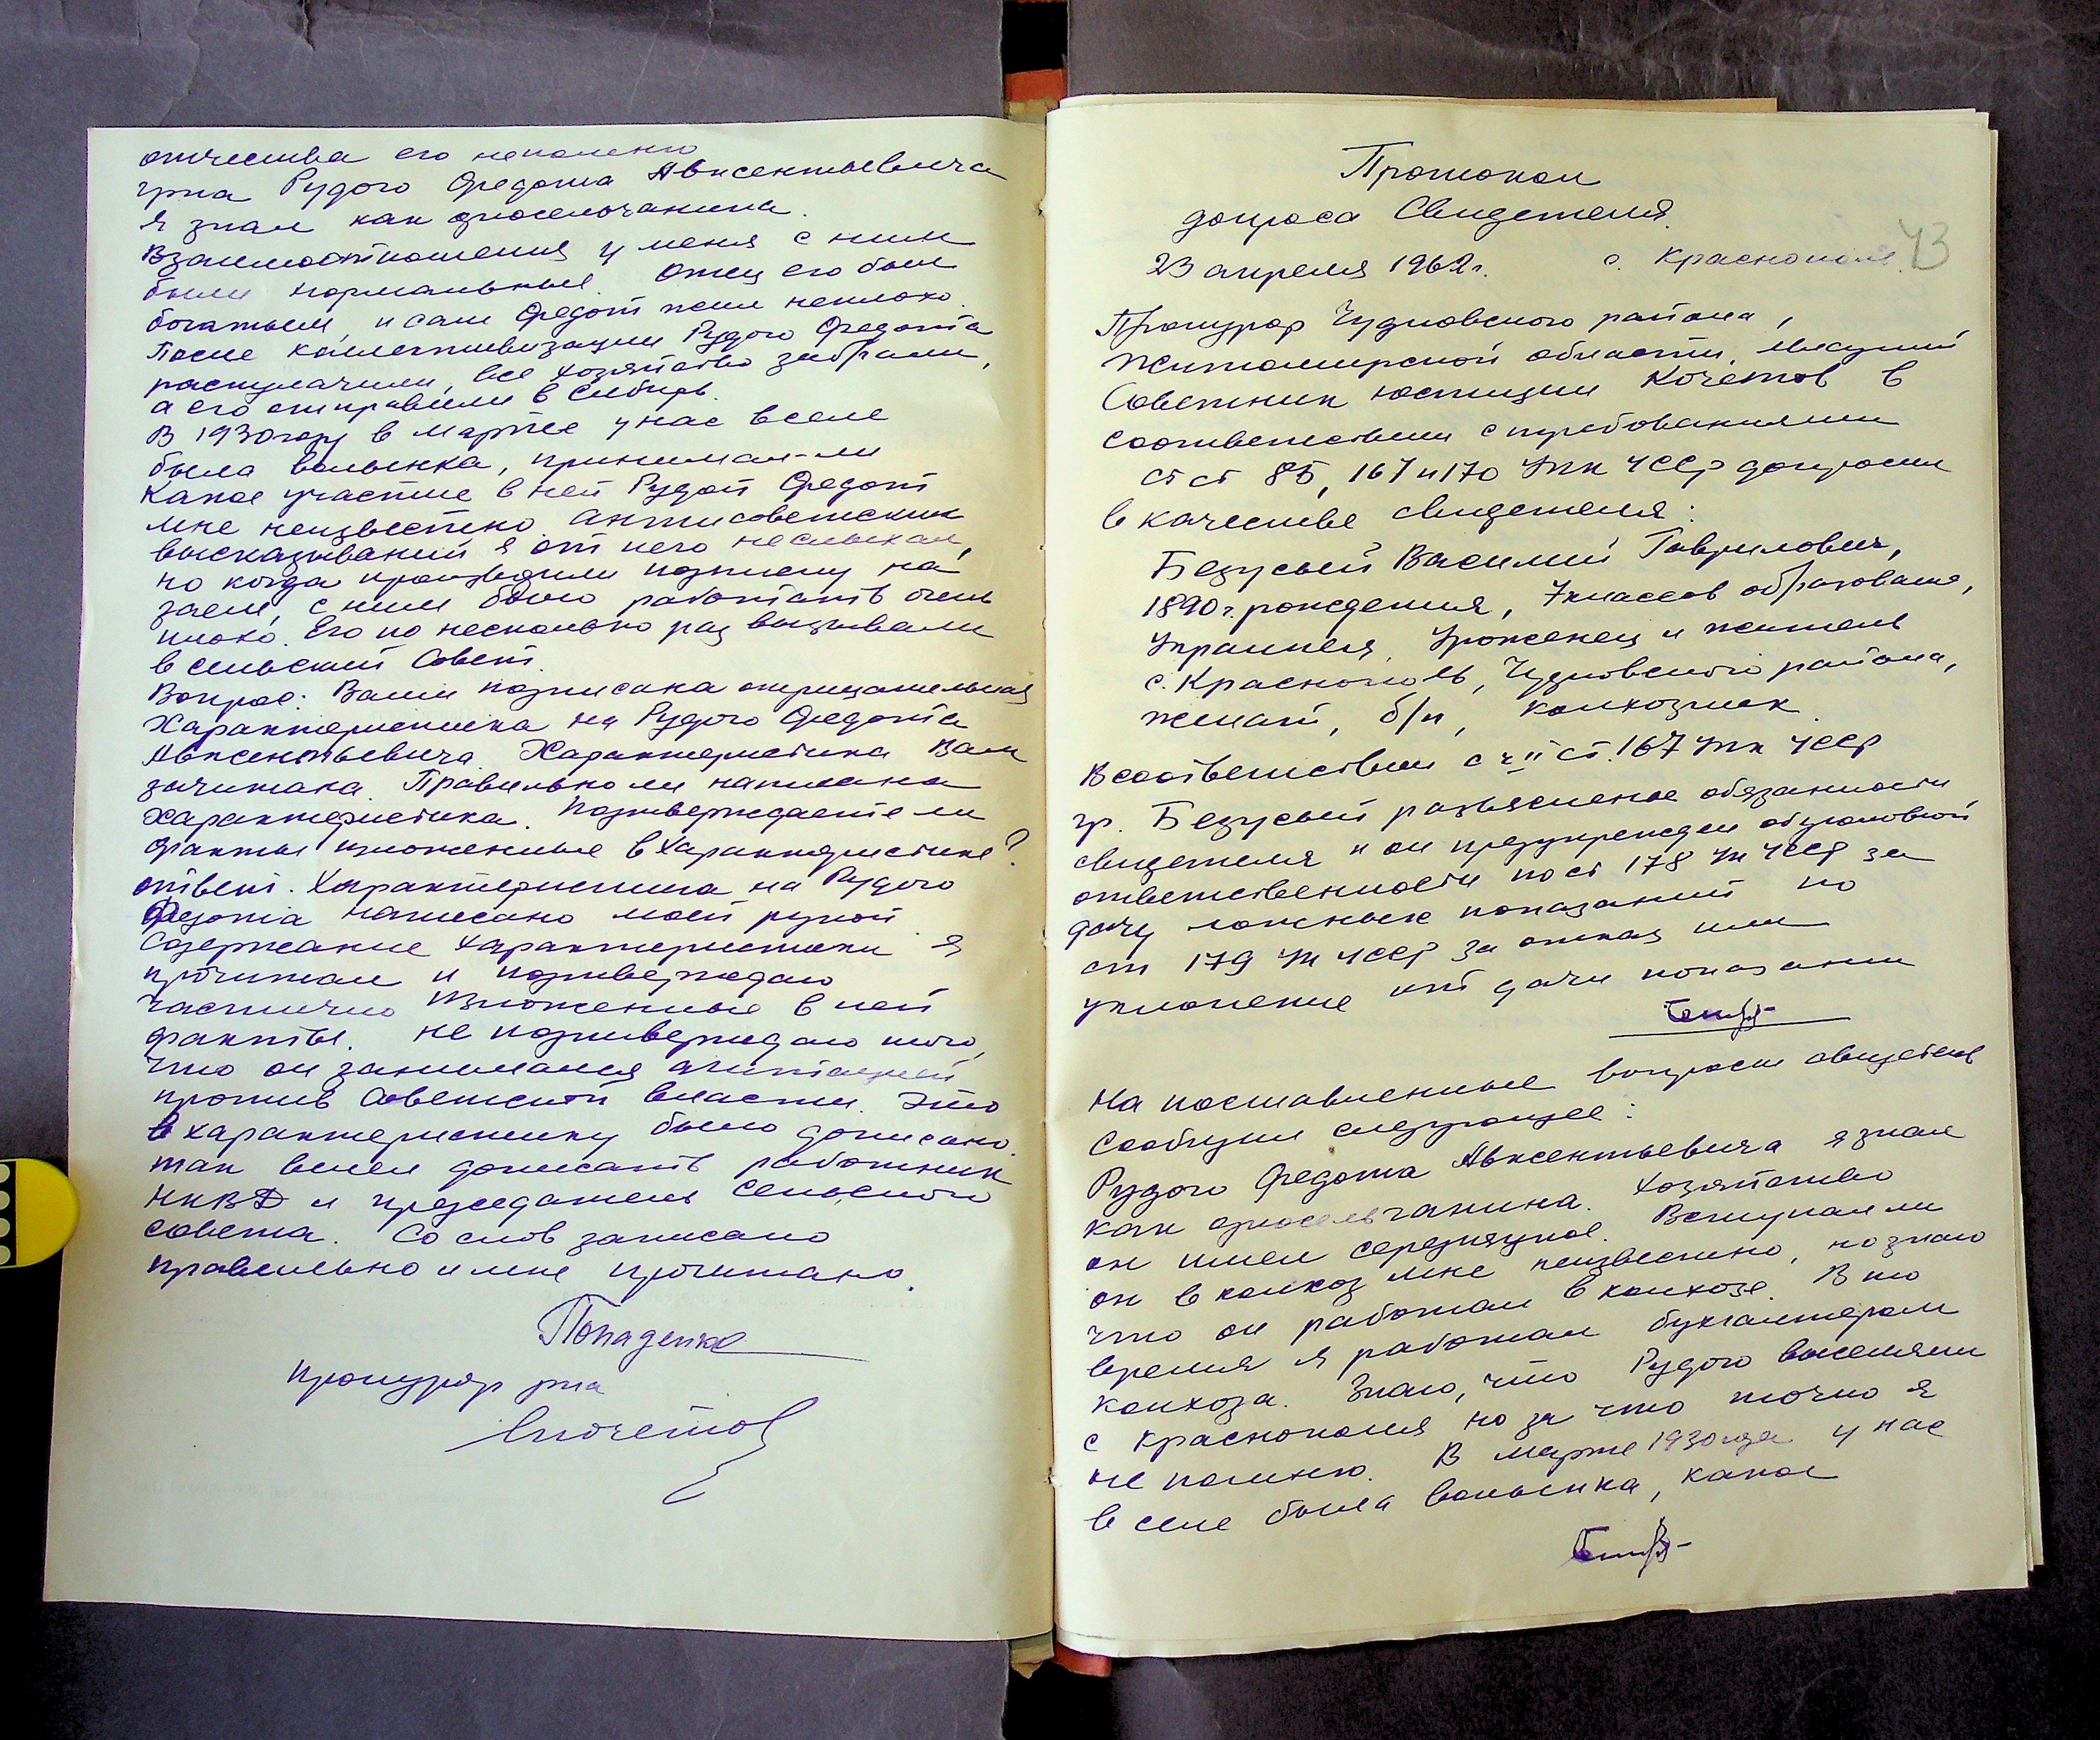 отчества его непомню
гр-на Рудого Федота Авксентьевича
я знал как односельчанина.
Взаимоотношения у меня с ним
были нормальные. Отец его был
богатым, и сам Федот жил неплохо.
После коллективизации Рудого Федота
раскулачили, все хозяйство забрали,
а его отправили в Сибирь.
В 1930 году в марте у нас в селе
была волынка, принимал-ли
какое участие в ней Рудой Федот
мне неизвестно. Антисоветских
высказываний я от него неслыхал,
но когда производили подписку на
заем, с ним было работать очень
плохо. Его по несколько раз вызывали
в сельский Совет.
Вопрос: Вами подписана отрицательная
характеристика на Рудого Федота
Авксентьевича. Характеристика Вам
зачитана. Правильно ли написана
характеристика. Подтверждаете ли
факты изложенные в характеристике?
Ответ. Характеристика на Рудого
Федота написано моей рукой
Содержание характеристики я
прочитал и подтверждаю
частично изложенные в ней
факты. Не подтверждаю того,
что он занимался агитацией
против Советской власти. Это
в характеристику было дописано.
так велел дописать работник
НКВД и председатель Сельского
Совета. Со слов записано
правильно и мне прочитано.
Попаденко
Прокурор р-на
Кочетов
43
Протокол
допроса Свидетеля.
23 апреля 1962 г. с. Краснополь.
Прокурор Чудновского района,
Житомирской области, младший
Советник юстиции Кочетов в
соответствии с требованиями
ст ст 85, 167 и 170 УПК УССР допросил
в качестве свидетеля:
Безусый Василий Гаврилович,
1890 г. рождения, 7 классов образования,
Украинец, Уроженец и житель
с. Краснополь, Чудновского района,
женат, б/п, колхозник.
В соответствии с ч II ст. 167 УПК УССР
гр. Безусый разъяснены обязанности
свидетеля и он предупрежден об уголовной
ответственности по ст 178 УК УССР за
дачу ложных показаний по
ст 179 УК УССР за отказ или
уклонение от дачи показании
На поставленные вопросы свидетель
сообщил следующее:
Рудого Федота Авксентьевича я знал
как односельчанина. Хозяйство
он имел середняцкое. Вступал ли
он в колхоз мне неизвестно, но знаю
что он работал в колхозе. В то
время я работал бухгалтером
колхоза. Знаю, что Рудого выселяли
с Краснополя но за что точно я
не помню. В марте 1930 года у нас
в селе была волынка, какое